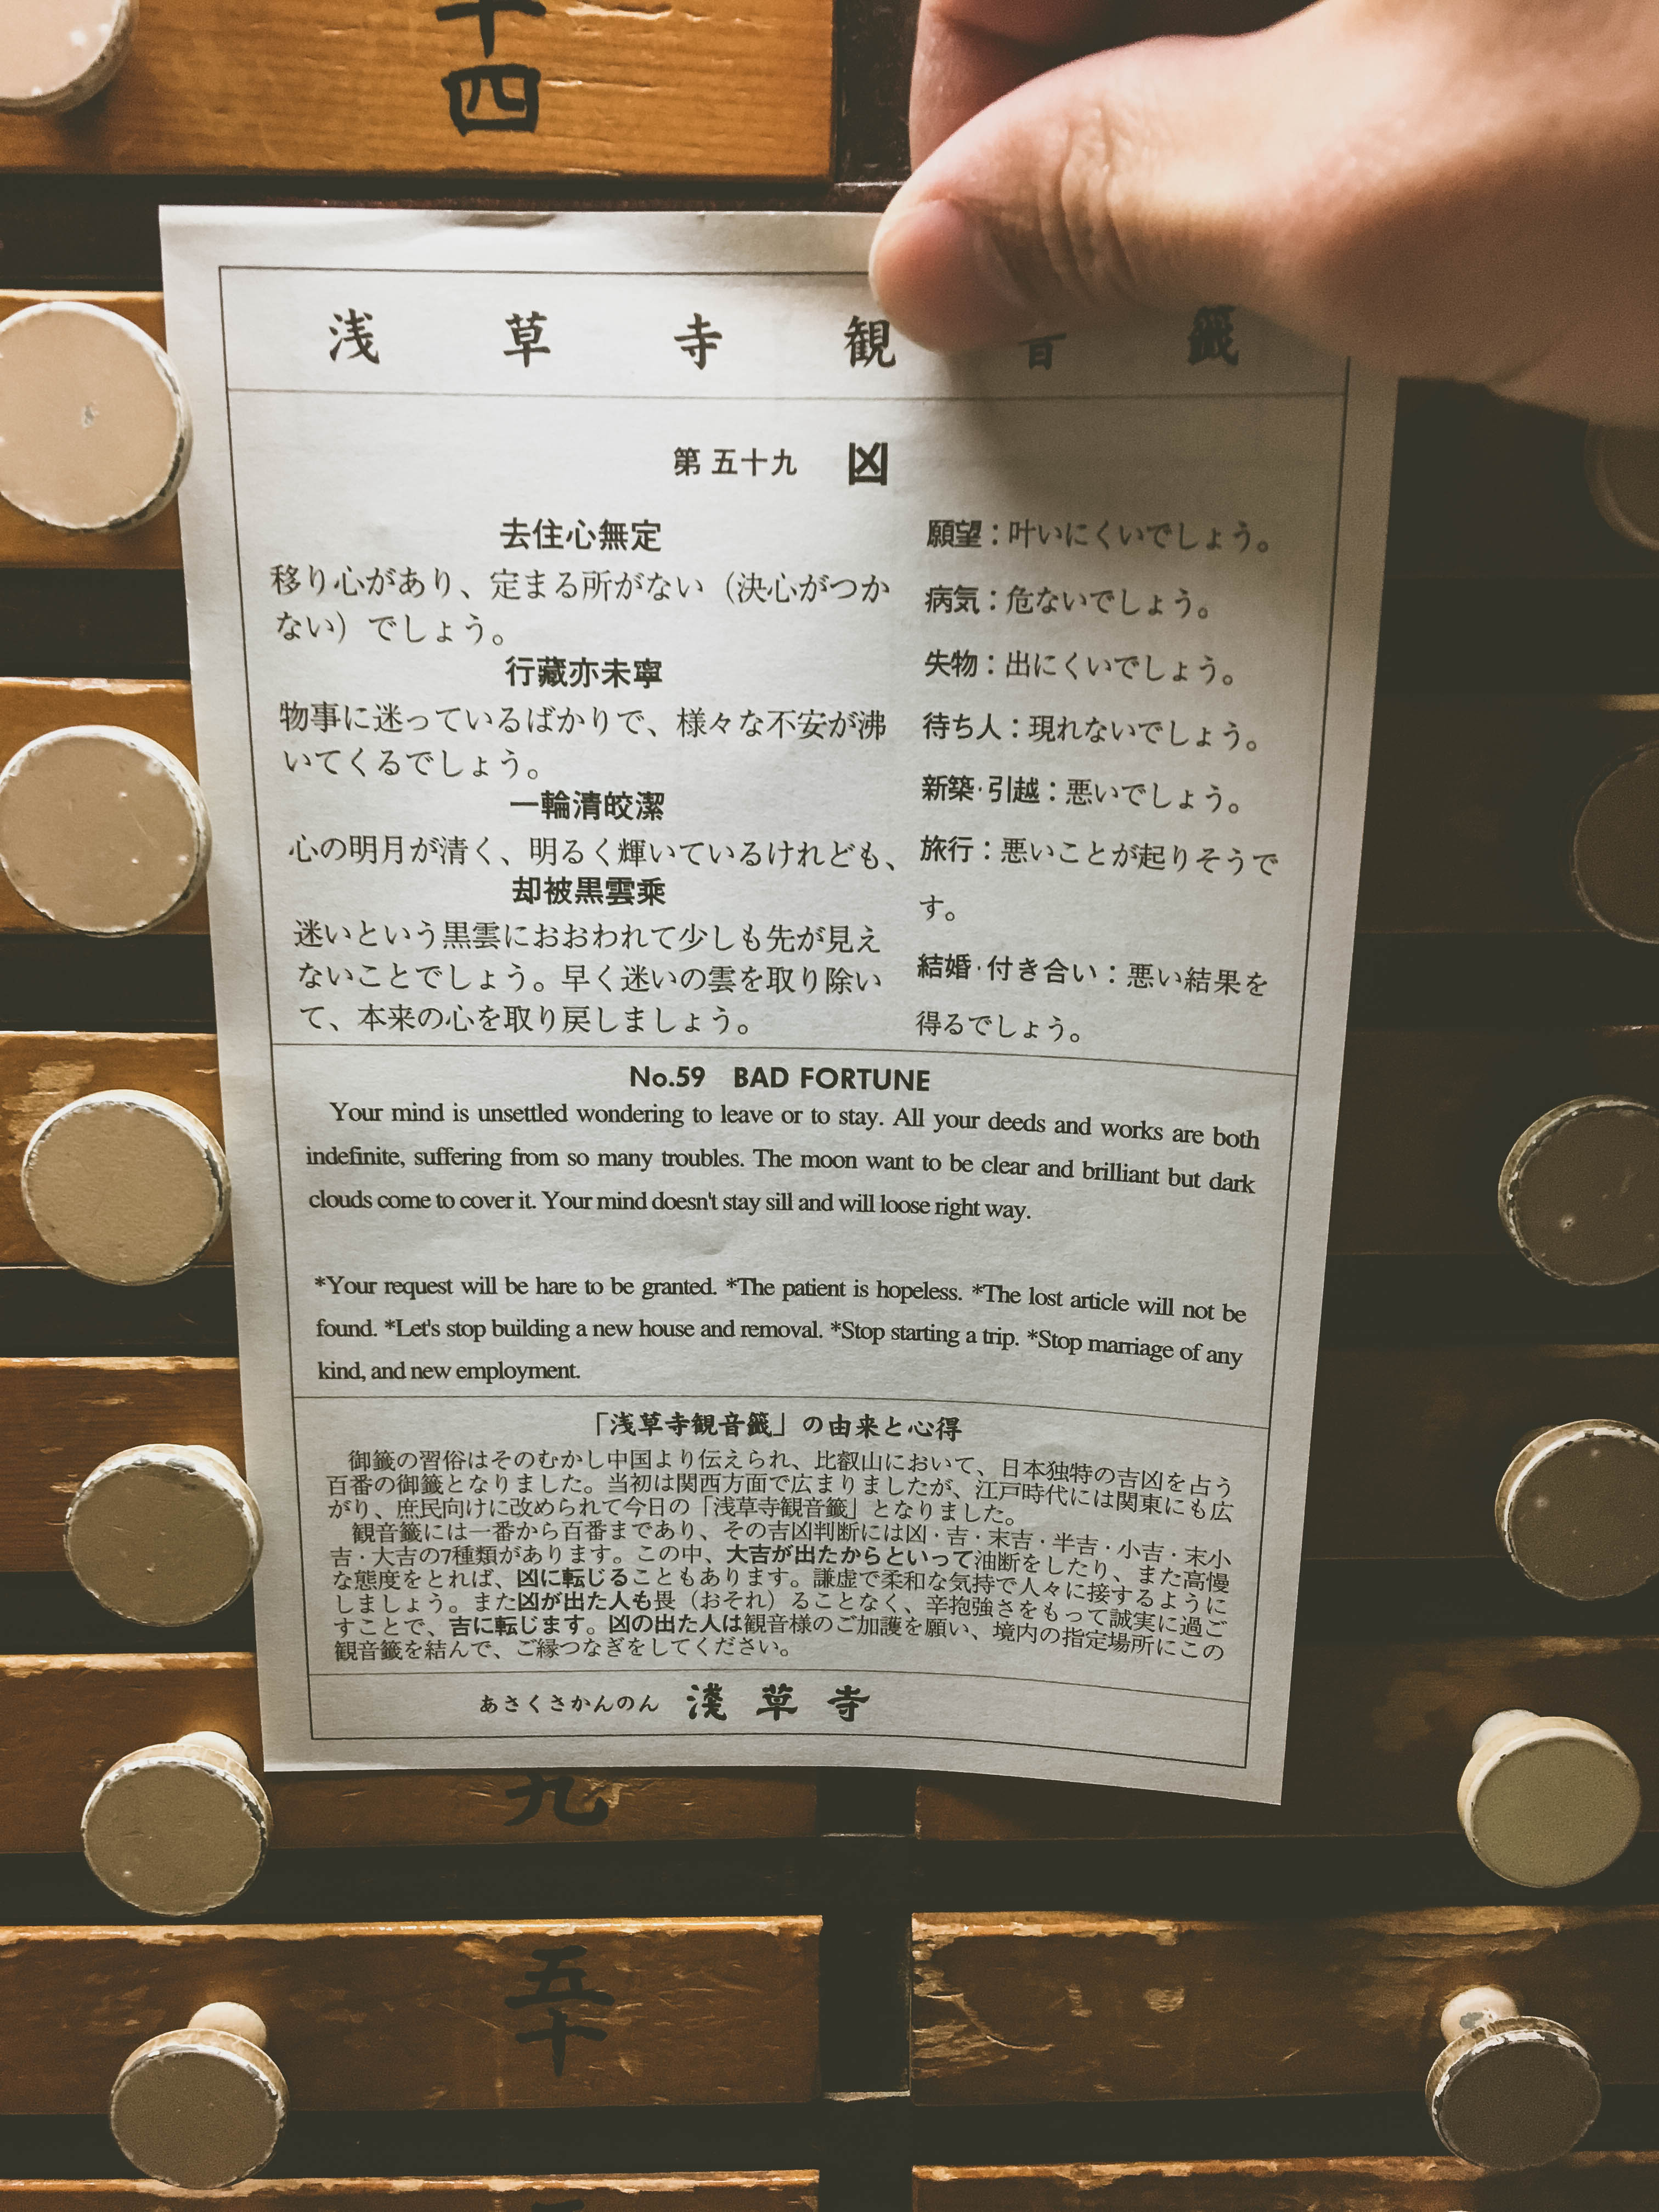 十四
浅草寺観音籤
第五十九 凶
去住心無定
移り心があり、定まる所がない（決心がつか
ない）でしょう。
行藏亦未寧
物事に迷っているばかりで、様々な不安が沸
いてくるでしょう。
一輪清皎潔
心の明月が清く、明るく輝いているけれども、
却被黒雲乗
迷いという黒雲におおわれて少しも先が見え
ないことでしょう。早く迷いの雲を取り除い
て、本来の心を取り戻しましょう。
願望：叶いにくいでしょう。
病気：危ないでしょう。
失物：出にくいでしょう。
待ち人：現れないでしょう。
新築·引越：悪いでしょう。
旅行：悪いことが起りそうで
す。
結婚·付き合い：悪い結果を
得るでしょう。
No.59 BAD FORTUNE
Your mind is unsettled wondering to leave or to stay. All your deeds and works are both
indefinite, suffering from so many troubles. The moon want to be clear and brilliant but dark
clouds come to cover it. Your mind doesn't stay sill and will loose right way.
*Your request will be hare to be granted. *The patient is hopeless. *The lost article will not be
found. *Let's stop building a new house and removal. *Stop starting a trip. *Stop marriage of any
kind, and new employment.
「浅草寺観音籤」の由来と心得
御籤の習俗はそのむかし中国より伝えられ、比叡山において、日本独特の吉凶を占う
百番の御籤となりました。当初は関西方面で広まりましたが、江戸時代には関東にも広
がり、庶民向けに改められて今日の「浅草寺観音籤」となりました。
観音籤には一番から百番まであり、その吉凶判断には凶・吉・末吉・半吉・小吉・末小
吉・大吉の7種類があります。この中、大吉が出たからといって油断をしたり、また高慢
な態度をとれば、凶に転じることもあります。謙虚で柔和な気持で人々に接するように
しましょう。また凶が出た人も畏（おそれ）ることなく、辛抱強さをもって誠実に過ご
すことで、吉に転じます。凶の出た人は観音様のご加護を願い、境内の指定場所にこの
観音籤を結んで、ご縁つなぎをしてください。
あさくさかんのん 淺草寺
九
五十